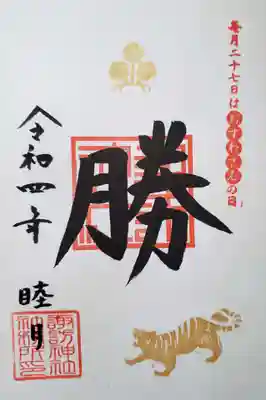 毎月二十七日は
の日」
勝
令和四年
睦月
諏訪神社